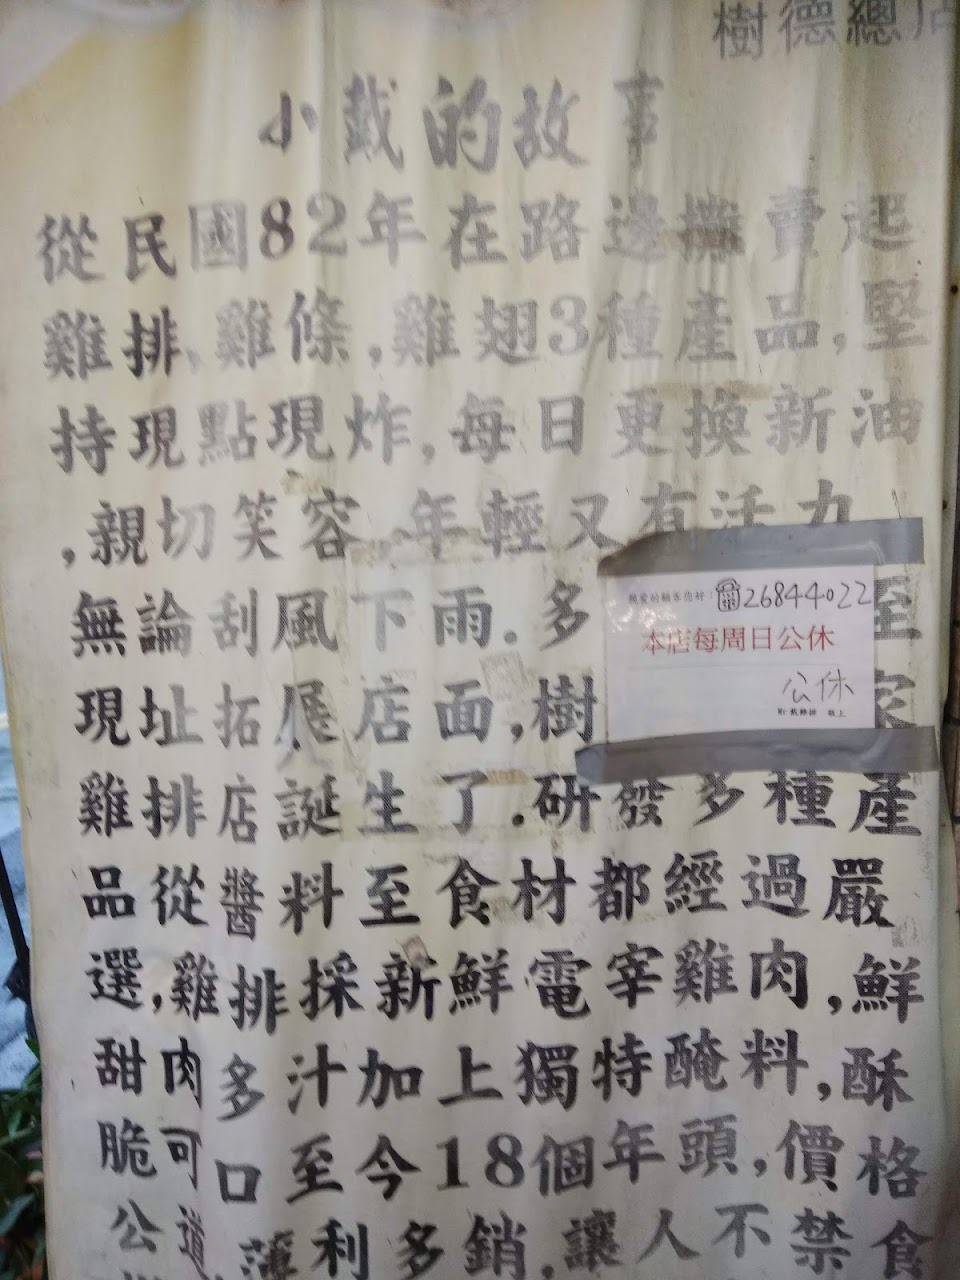 樹德總店
小戴的故事
從民國82年在路邊攤賣起
雞排,雞條,雞翅3種產品,堅
持現點現炸,每日更換新油
,親切笑容,年輕又有活力
無論刮風下雨.多
至
親愛的顧客您好:☎26844022
本店每周日公休
公休
Mr.戴雞排 敬上
現址拓展店面,樹
家
雞排店誕生了.研發多種產
品從醬料至食材都經過嚴
選,雞排採新鮮電宰雞肉,鮮
甜肉多汁加上獨特醃料,酥
脆可口至今18個年頭,價格
公道,薄利多銷,讓人不禁食